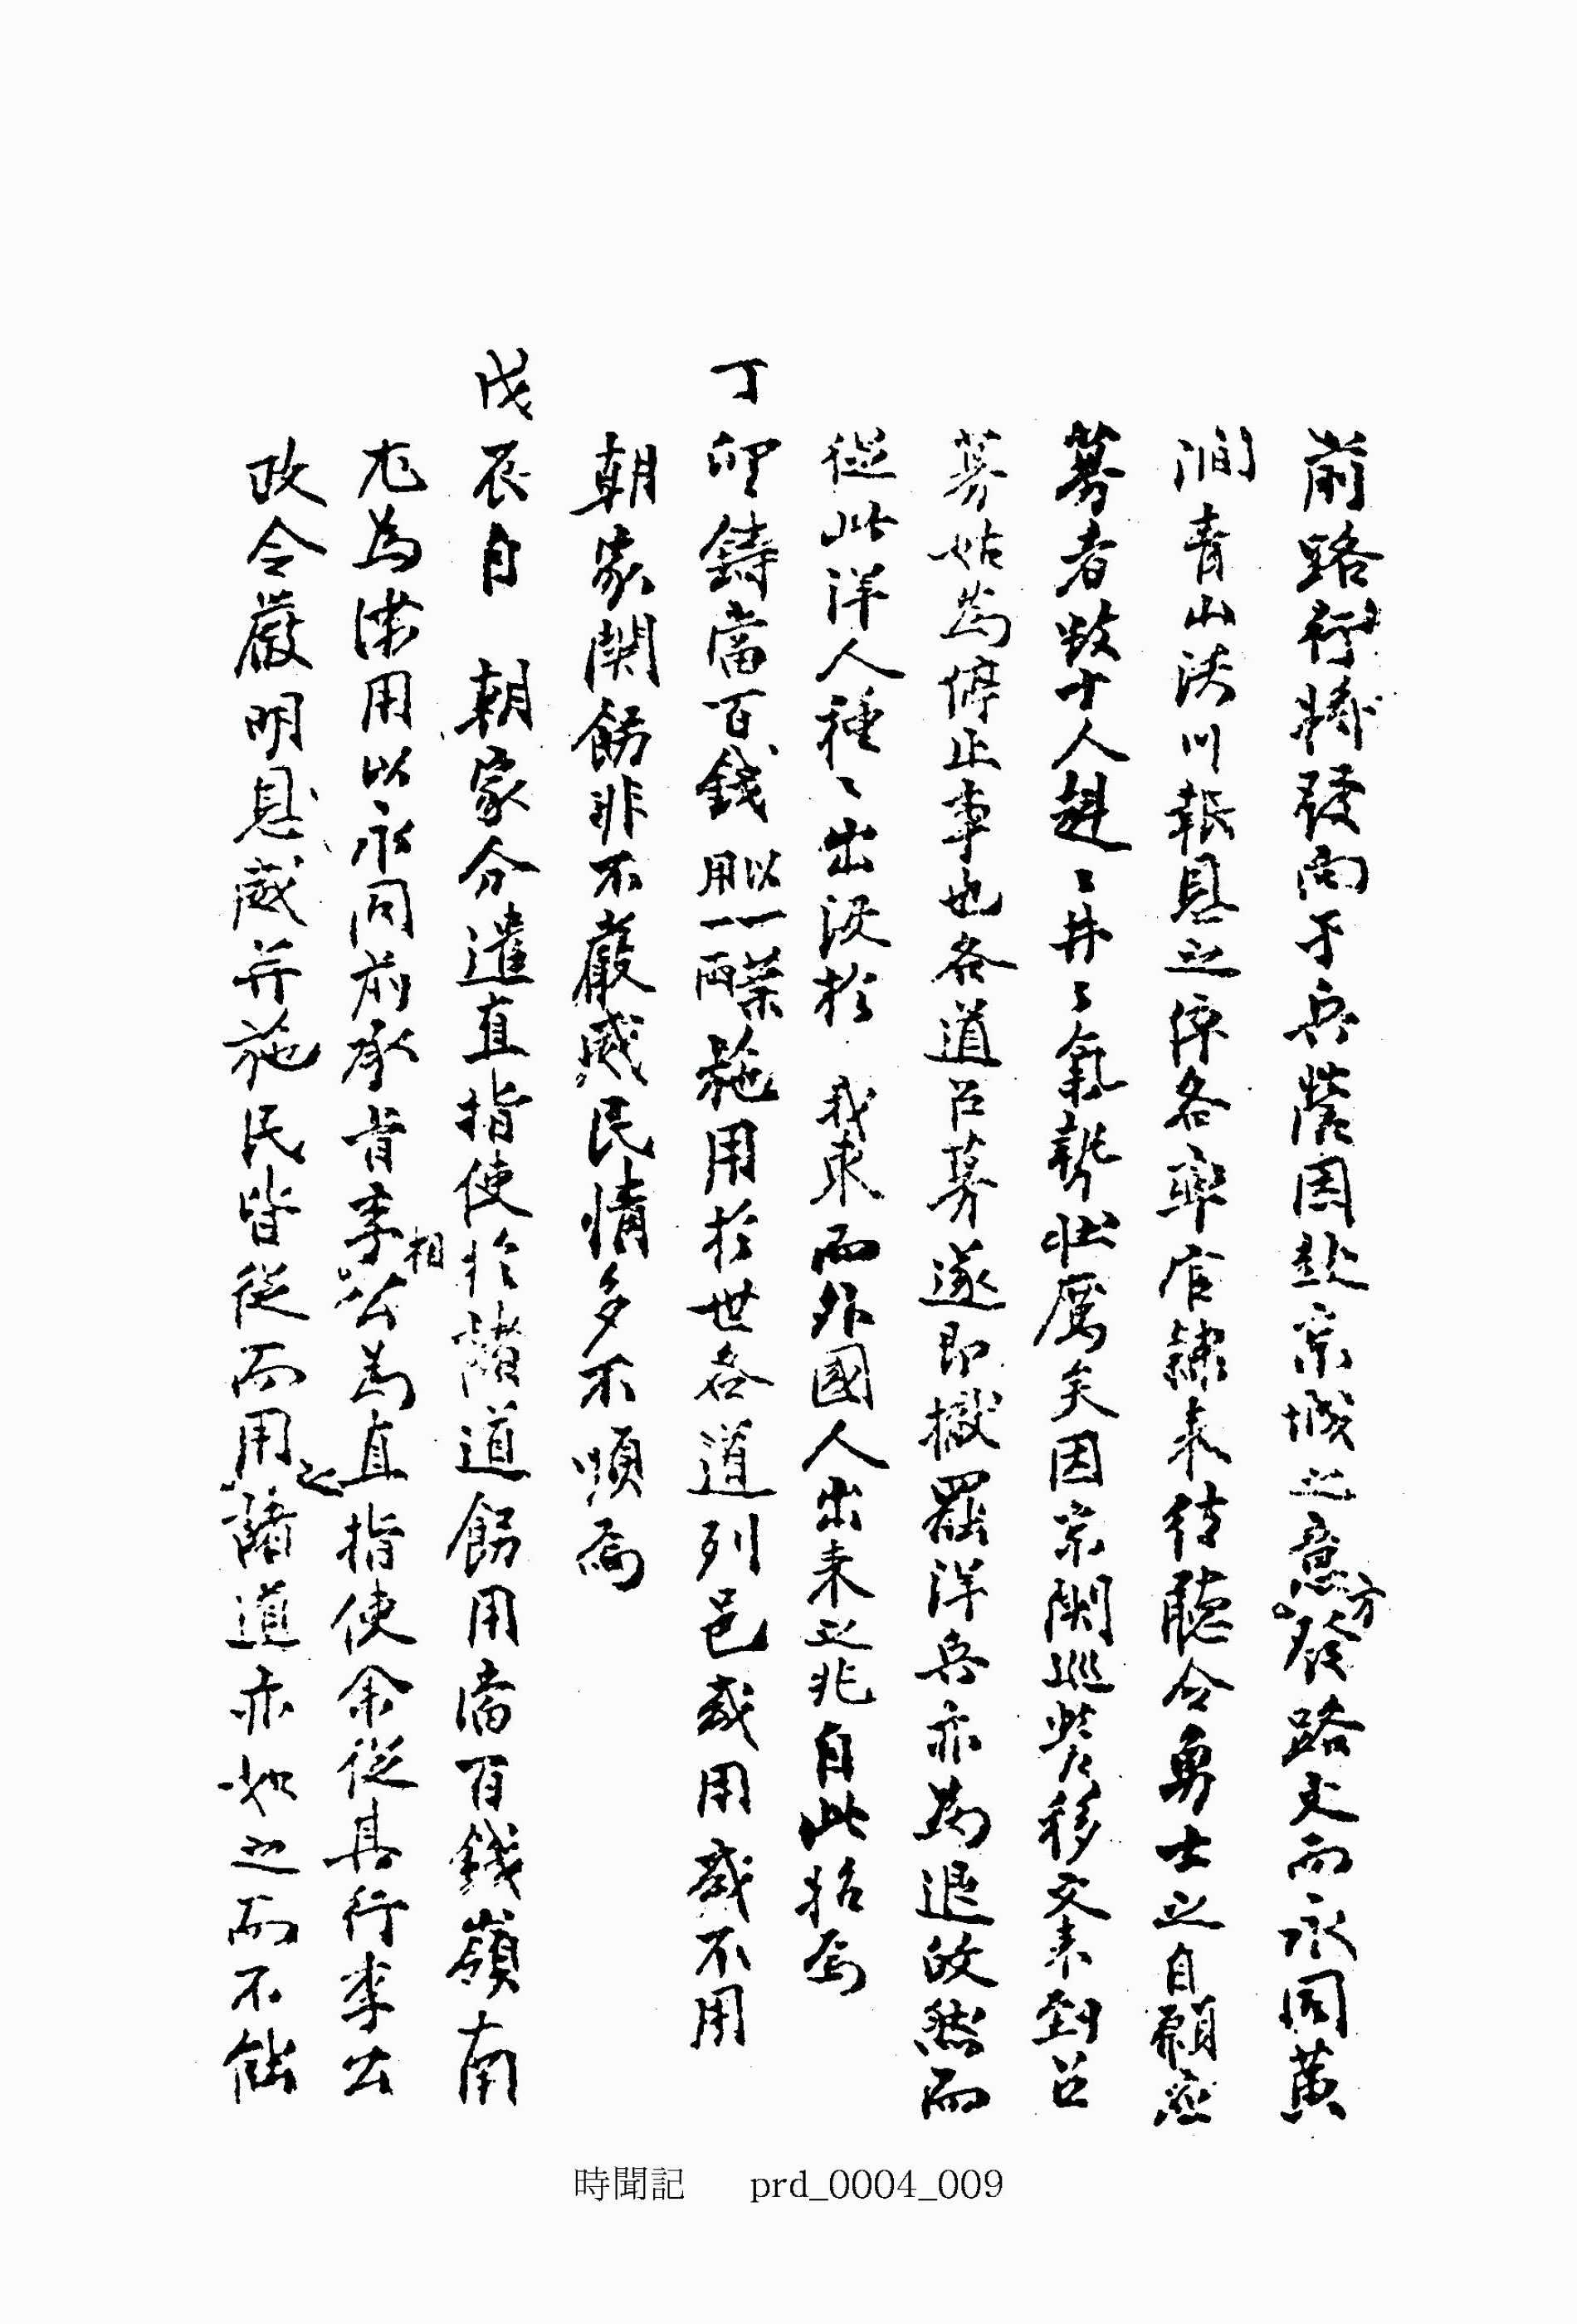 前路行將發向于兵營因赴京城之意方發路文而永同黃
澗青山沃川報恩之倅各率官隸來待聽令勇士之自願應
募者數十人赳〻井〻氣勢壯厲矣因京關巡營移文來到召
募姑爲停止事也各道召募遂即撤罷洋兵亦爲退故然而
從此洋人種〻出沒於 我東而外國人出來之兆自此始焉
丁卯鑄當百錢用以一一兩葉施用於世各道列邑或用或不用
朝家關飭非不嚴威民情多不順焉
戊辰自 朝家分遣直指使於諸道飭用當百錢嶺南
尤爲滯用以永同前承旨李相公爲直指使余從其行李公
政令嚴明恩威并施民皆從而用之諸道亦如之而不能
時聞記 prd_0004_009